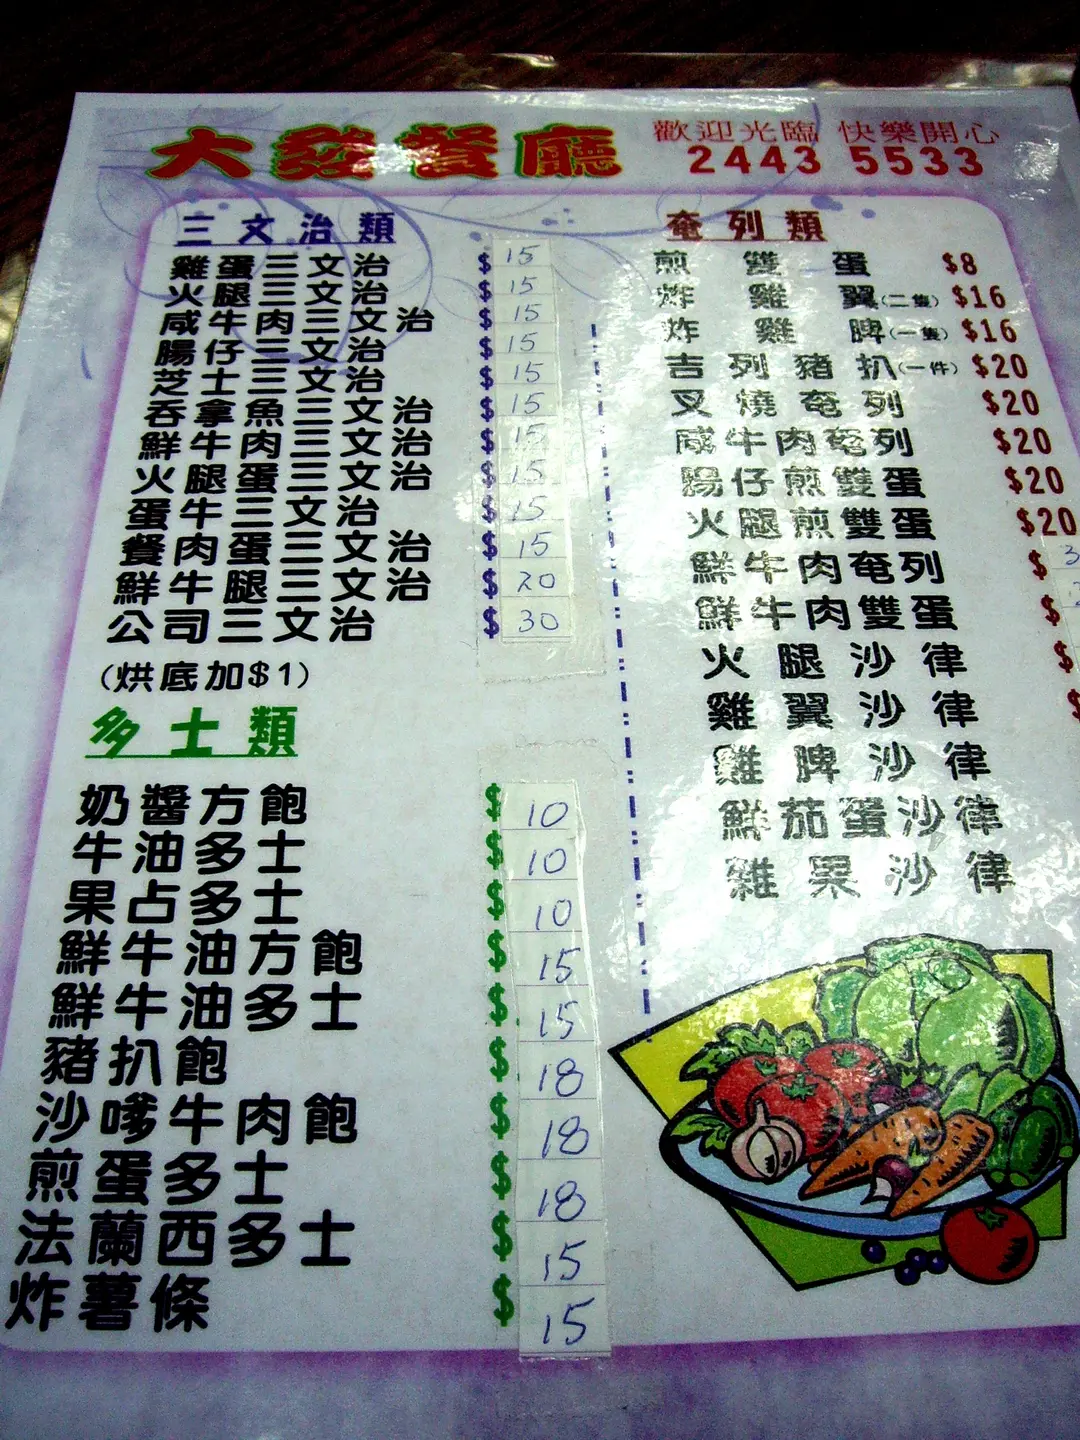 大發餐廳
歡迎光臨 快樂開心
2443 5533
三文治類
雞蛋三文治 $15
火腿三文治 $15
咸牛肉三文治 $15
腸仔三文治 $15
芝士三文治 $15
吞拿魚三文治 $15
鮮牛肉三文治 $15
火腿蛋三文治 $15
蛋牛三文治 $15
餐肉蛋三文治 $15
鮮牛腿三文治 $20
公司三文治 $30
(烘底加$1)
多士類
奶醬方飽 $10
牛油多士 $10
果占多士 $10
鮮牛油方飽 $15
鮮牛油多士 $15
豬扒飽 $18
沙嗲牛肉飽 $18
煎蛋多士 $18
法蘭西多士 $15
炸薯條 $15
奄列類
煎雙蛋 $8
炸雞翼(二隻) $16
炸雞脾(一隻) $16
吉列豬扒(一件) $20
叉燒奄列 $20
咸牛肉奄列 $20
腸仔煎雙蛋 $20
火腿煎雙蛋 $20
鮮牛肉奄列 $
鮮牛肉雙蛋 $
火腿沙律 $
雞翼沙律 $
雞脾沙律
鮮茄蛋沙律
雜果沙律